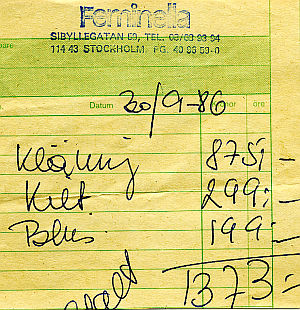 Feminella
SIBYLLEGATAN 59, TEL. 08/63 93 94
114 43 STOCKHOLM. PG. 40 93 53-0
bare
Datum 30/9-86 nor öre
Klänning 875:-
Kilt 299:-
Blus 199:-
1373:-